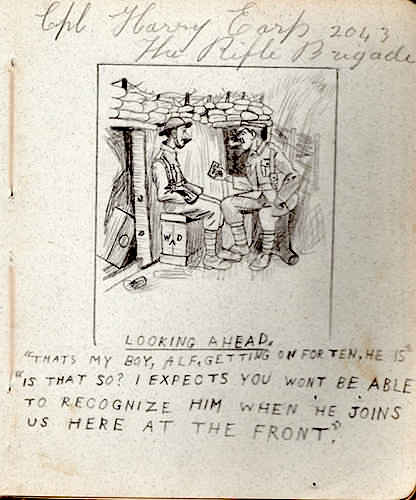 Cpl Harry Earp 2043
The Rifle Brigade
W↑D
LOOKING AHEAD.
"THATS MY BOY, ALF, GETTING ON FOR TEN, HE IS"
"IS THAT SO? I EXPECTS YOU WONT BE ABLE
TO RECOGNIZE HIM WHEN HE JOINS
US HERE AT THE FRONT."